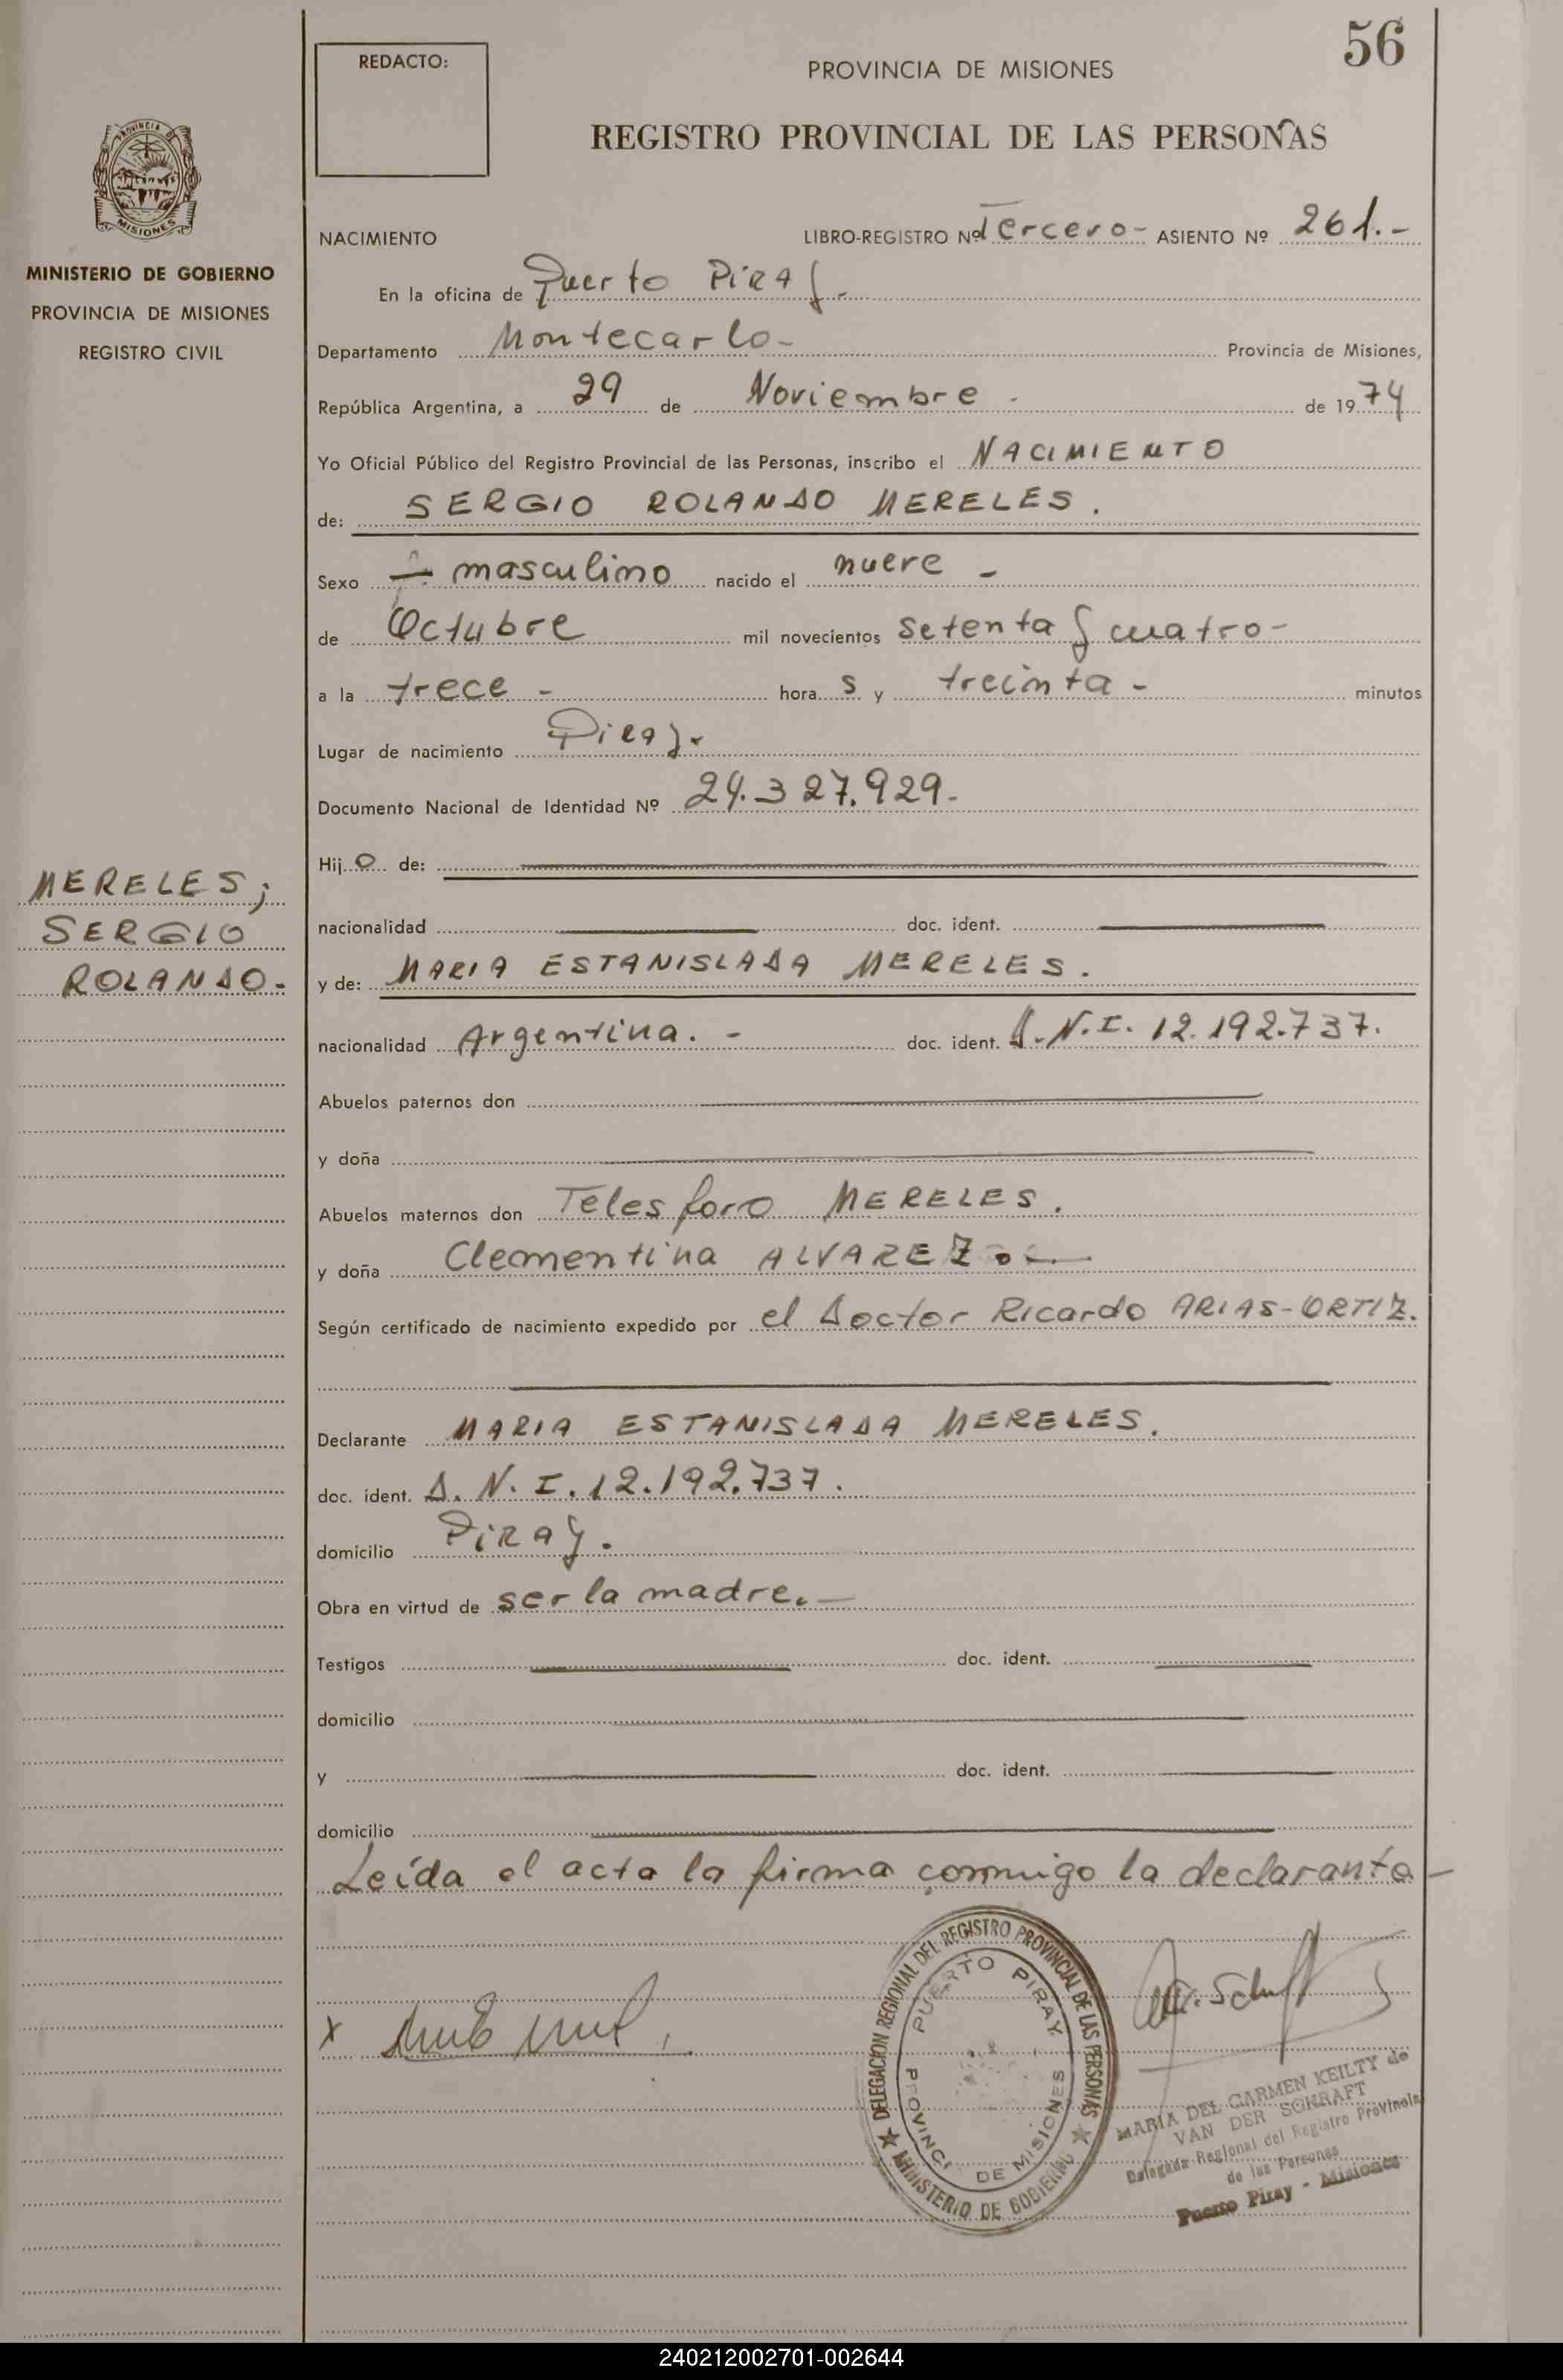 56
REDACTO:
PROVINCIA DE MISIONES
REGISTRO PROVINCIAL DE LAS PERSONAS
PROVINCIA DE
MISIONES
MINISTERIO DE GOBIERNO
PROVINCIA DE MISIONES
REGISTRO CIVIL
NACIMIENTO LIBRO-REGISTRO Nº Tercero- ASIENTO Nº 261.-
En la oficina de Puerto Piray.-
Departamento Montecarlo- Provincia de Misiones,
República Argentina, a 29 de Noviembre - de 1974
Yo Oficial Público del Registro Provincial de las Personas, inscribo el NACIMIENTO
de: SERGIO ROLANDO MERELES.
Sexo masculino nacido el nueve -
de Octubre mil novecientos setenta y cuatro-
a la trece - hora s y treinta - minutos
Lugar de nacimiento Piray.
Documento Nacional de Identidad Nº 24.327.929-
Hij o de:
nacionalidad doc. ident.
MERELES;
SERGIO
ROLANDO-
y de: MARIA ESTANISLADA MERELES.
nacionalidad Argentina. - doc. ident. D.N.I. 12.192.737.
Abuelos paternos don
y doña
Abuelos maternos don Telesforo MERELES.
y doña Clementina ALVAREZ
Según certificado de nacimiento expedido por el Doctor Ricardo ARIAS-ORTIZ.
Declarante MARIA ESTANISLADA MERELES.
doc. ident. D.N.I. 12.192.737.
domicilio Piray.
Obra en virtud de ser la madre.-
Testigos doc. ident.
domicilio
y doc. ident.
domicilio
Leída el acta la firma conmigo la declarante-
DELEGACION REGIONAL DEL REGISTRO PROVINCIAL DE LAS PERSONAS
MINISTERIO DE GOBIERNO
PUERTO PIRAY
PROVINCI DE MISIONES
x
MARIA DEL CARMEN KEILTY de
VAN DER SCHRAFT
Delegada Regional del Registro Provincial
de las Personas
Puerto Piray - Misiones
240212002701-002644